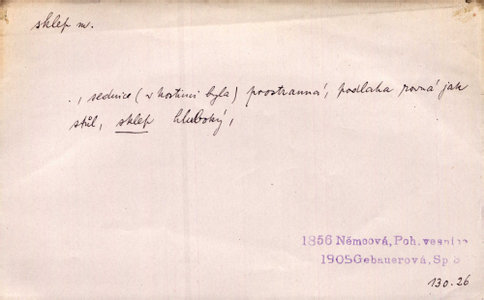 sklep m.
., sednice (v hostinci byla) prostranná, podlaha rovná jak
stůl, sklep hluboký,
1856 Němcová, Poh. vesnice
1905 Gebauerová, Sp
130.26